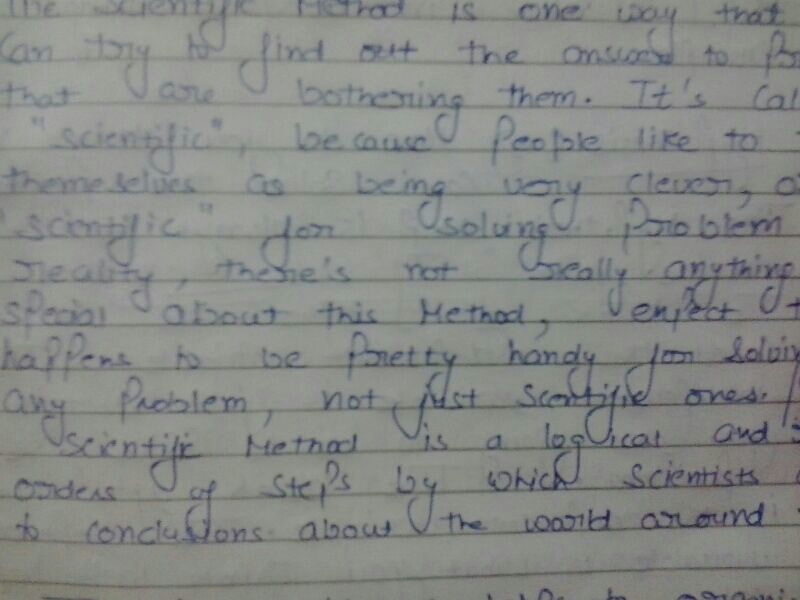 The Scientific Method is one way that
Can try to find out the answer to
that are bothering them. It's
"scientific", because People like to
themeselves as being very clever,
"scientific" for solving Problem
reality, there's not really anything
special about this Method,
happens to be Pretty handy for
any Problem, not just ones.
Scientific Method is a logical and
orders of steps by which Scientists
to conclusions about the world around